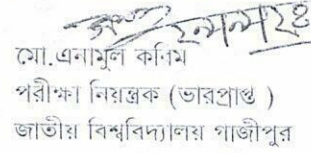 মো.এনামুল করিম
পরীক্ষা নিয়ন্ত্রক (ভারপ্রাপ্ত )
জাতীয় বিশ্ববিদ্যালয় গাজীপুর